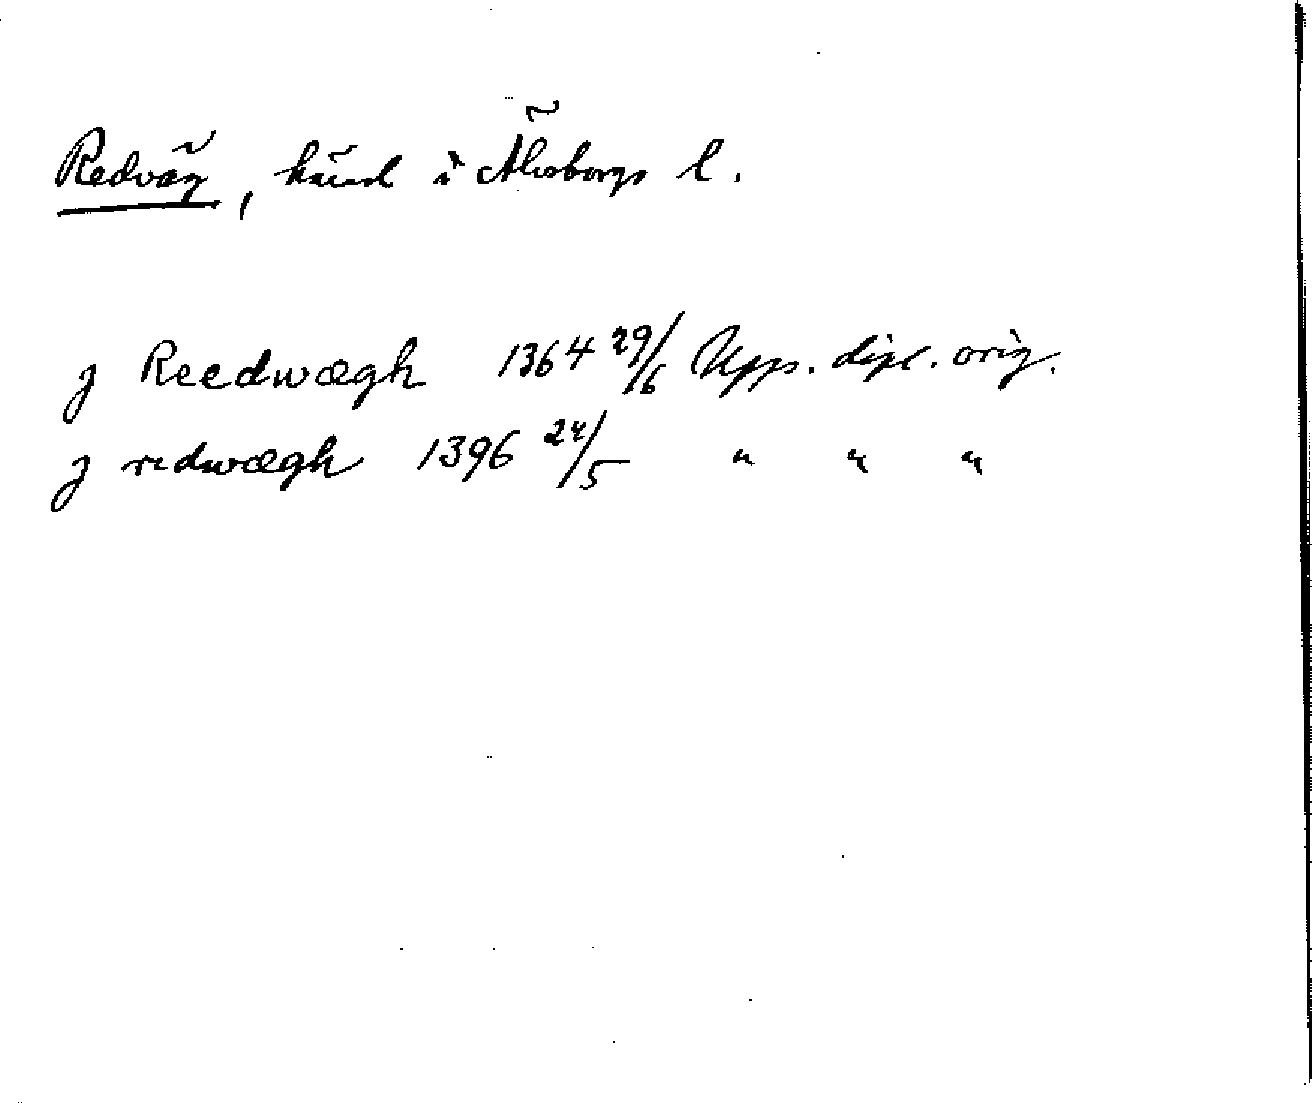 Redväg, härad i Älvsborgs l.
j Reedwægh 1364 29/6 Upps. dipl. orig.
j redwægh 1396 24/5 " " "